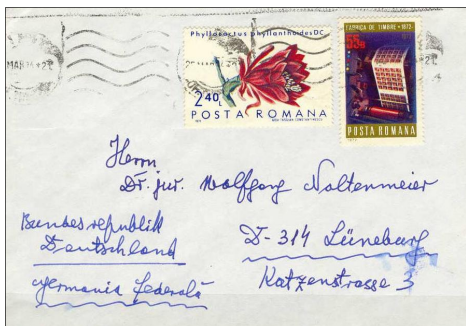 Phyllocactus phyllanthoides DC
2.40L
POSTA ROMANA
FABRICA DE TIMBRE - 1872
55B
POSTA ROMANA
Herrn
Dr. jur. Wolfgang Noltenmeier
Bundesrepublik
Deutschland
Germania federală
D-314 Lüneburg
Katzenstrasse 3